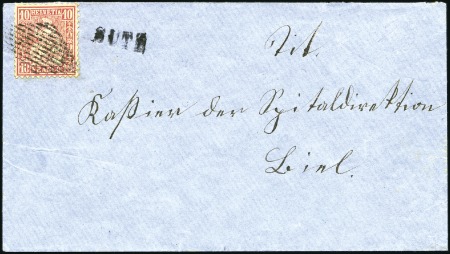 10 HELVETIA 10
SUTZ
Tit.
Kaßier der Spitaldirektion
Biel.